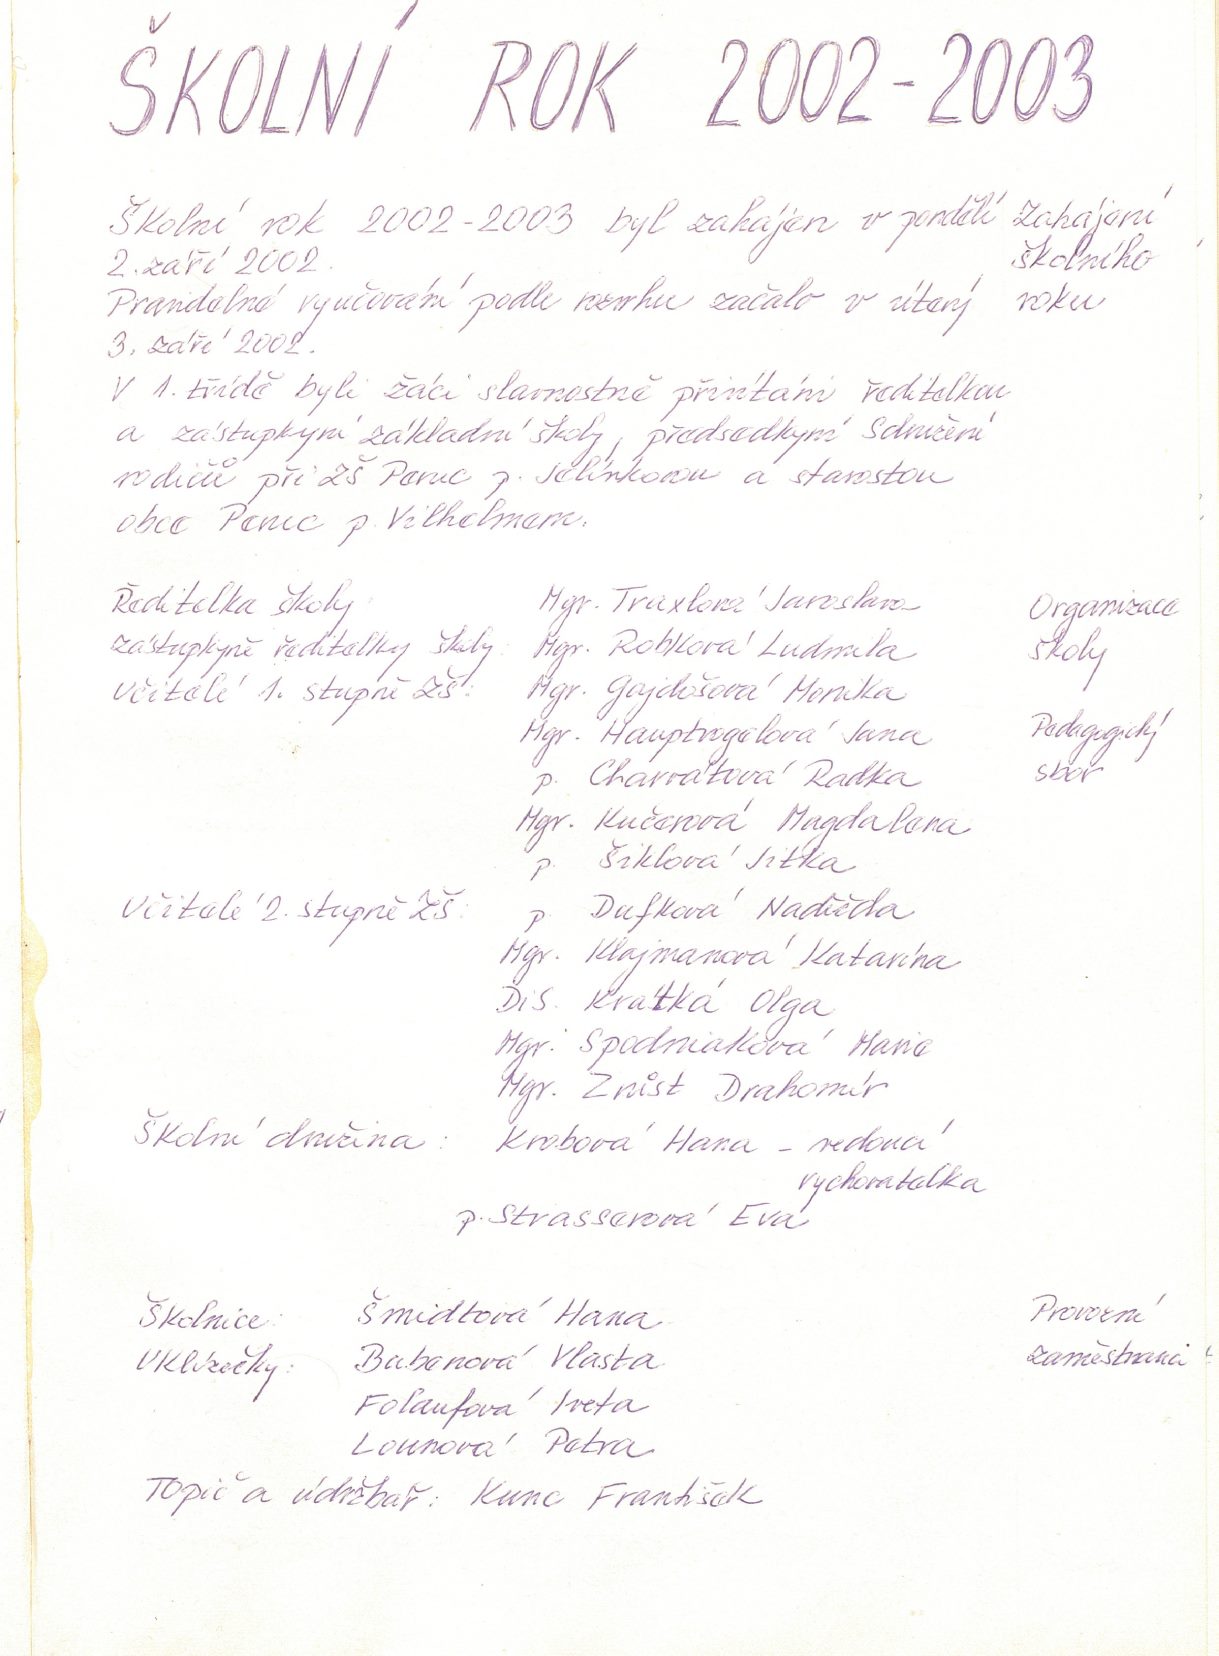 ŠKOLNÍ ROK 2002-2003
Školní rok 2002-2003 byl zahájen v pondělí
2. září 2002.
Pravidelné vyučování podle rozvrhu začalo v úterý
3. září 2002.
V 1. třídě byli žáci slavnostně přivítáni ředitelkou
a zástupkyní základní školy, předsedkyní Sdružení
rodičů při ZŠ Peruc p. Jelínkovou a starostou
obce Peruc p. Vilhelmem.
Zahájení
školního
roku
Ředitelka školy: Mgr. Traxlová Jaroslava
zástupkyně ředitelky školy: Mgr. Robková Ludmila
Učitelé 1. stupně ZŠ: Mgr. Gajdošová Monika
Mgr. Hauptvogelová Jana
p. Charvátová Radka
Mgr. Kučerová Magdalena
p. Šiklová Jitka
Organizace
školy
Pedagogický
sbor
Učitelé 2. stupně ZŠ: p. Dufková Naděžda
Mgr. Klajmanová Katarína
DiS. Krátká Olga
Mgr. Spodniaková Marie
Mgr. Zrůst Drahomír
Školní družina: Krobová Hana - vedoucí
vychovatelka
p. Strasserová Eva
Školnice: Šmidtová Hana
Uklízečky: Bubanová Vlasta
Folaufová Iveta
Lounová Petra
Topič a údržbář: Kunc František
Provozní
zaměstnanci